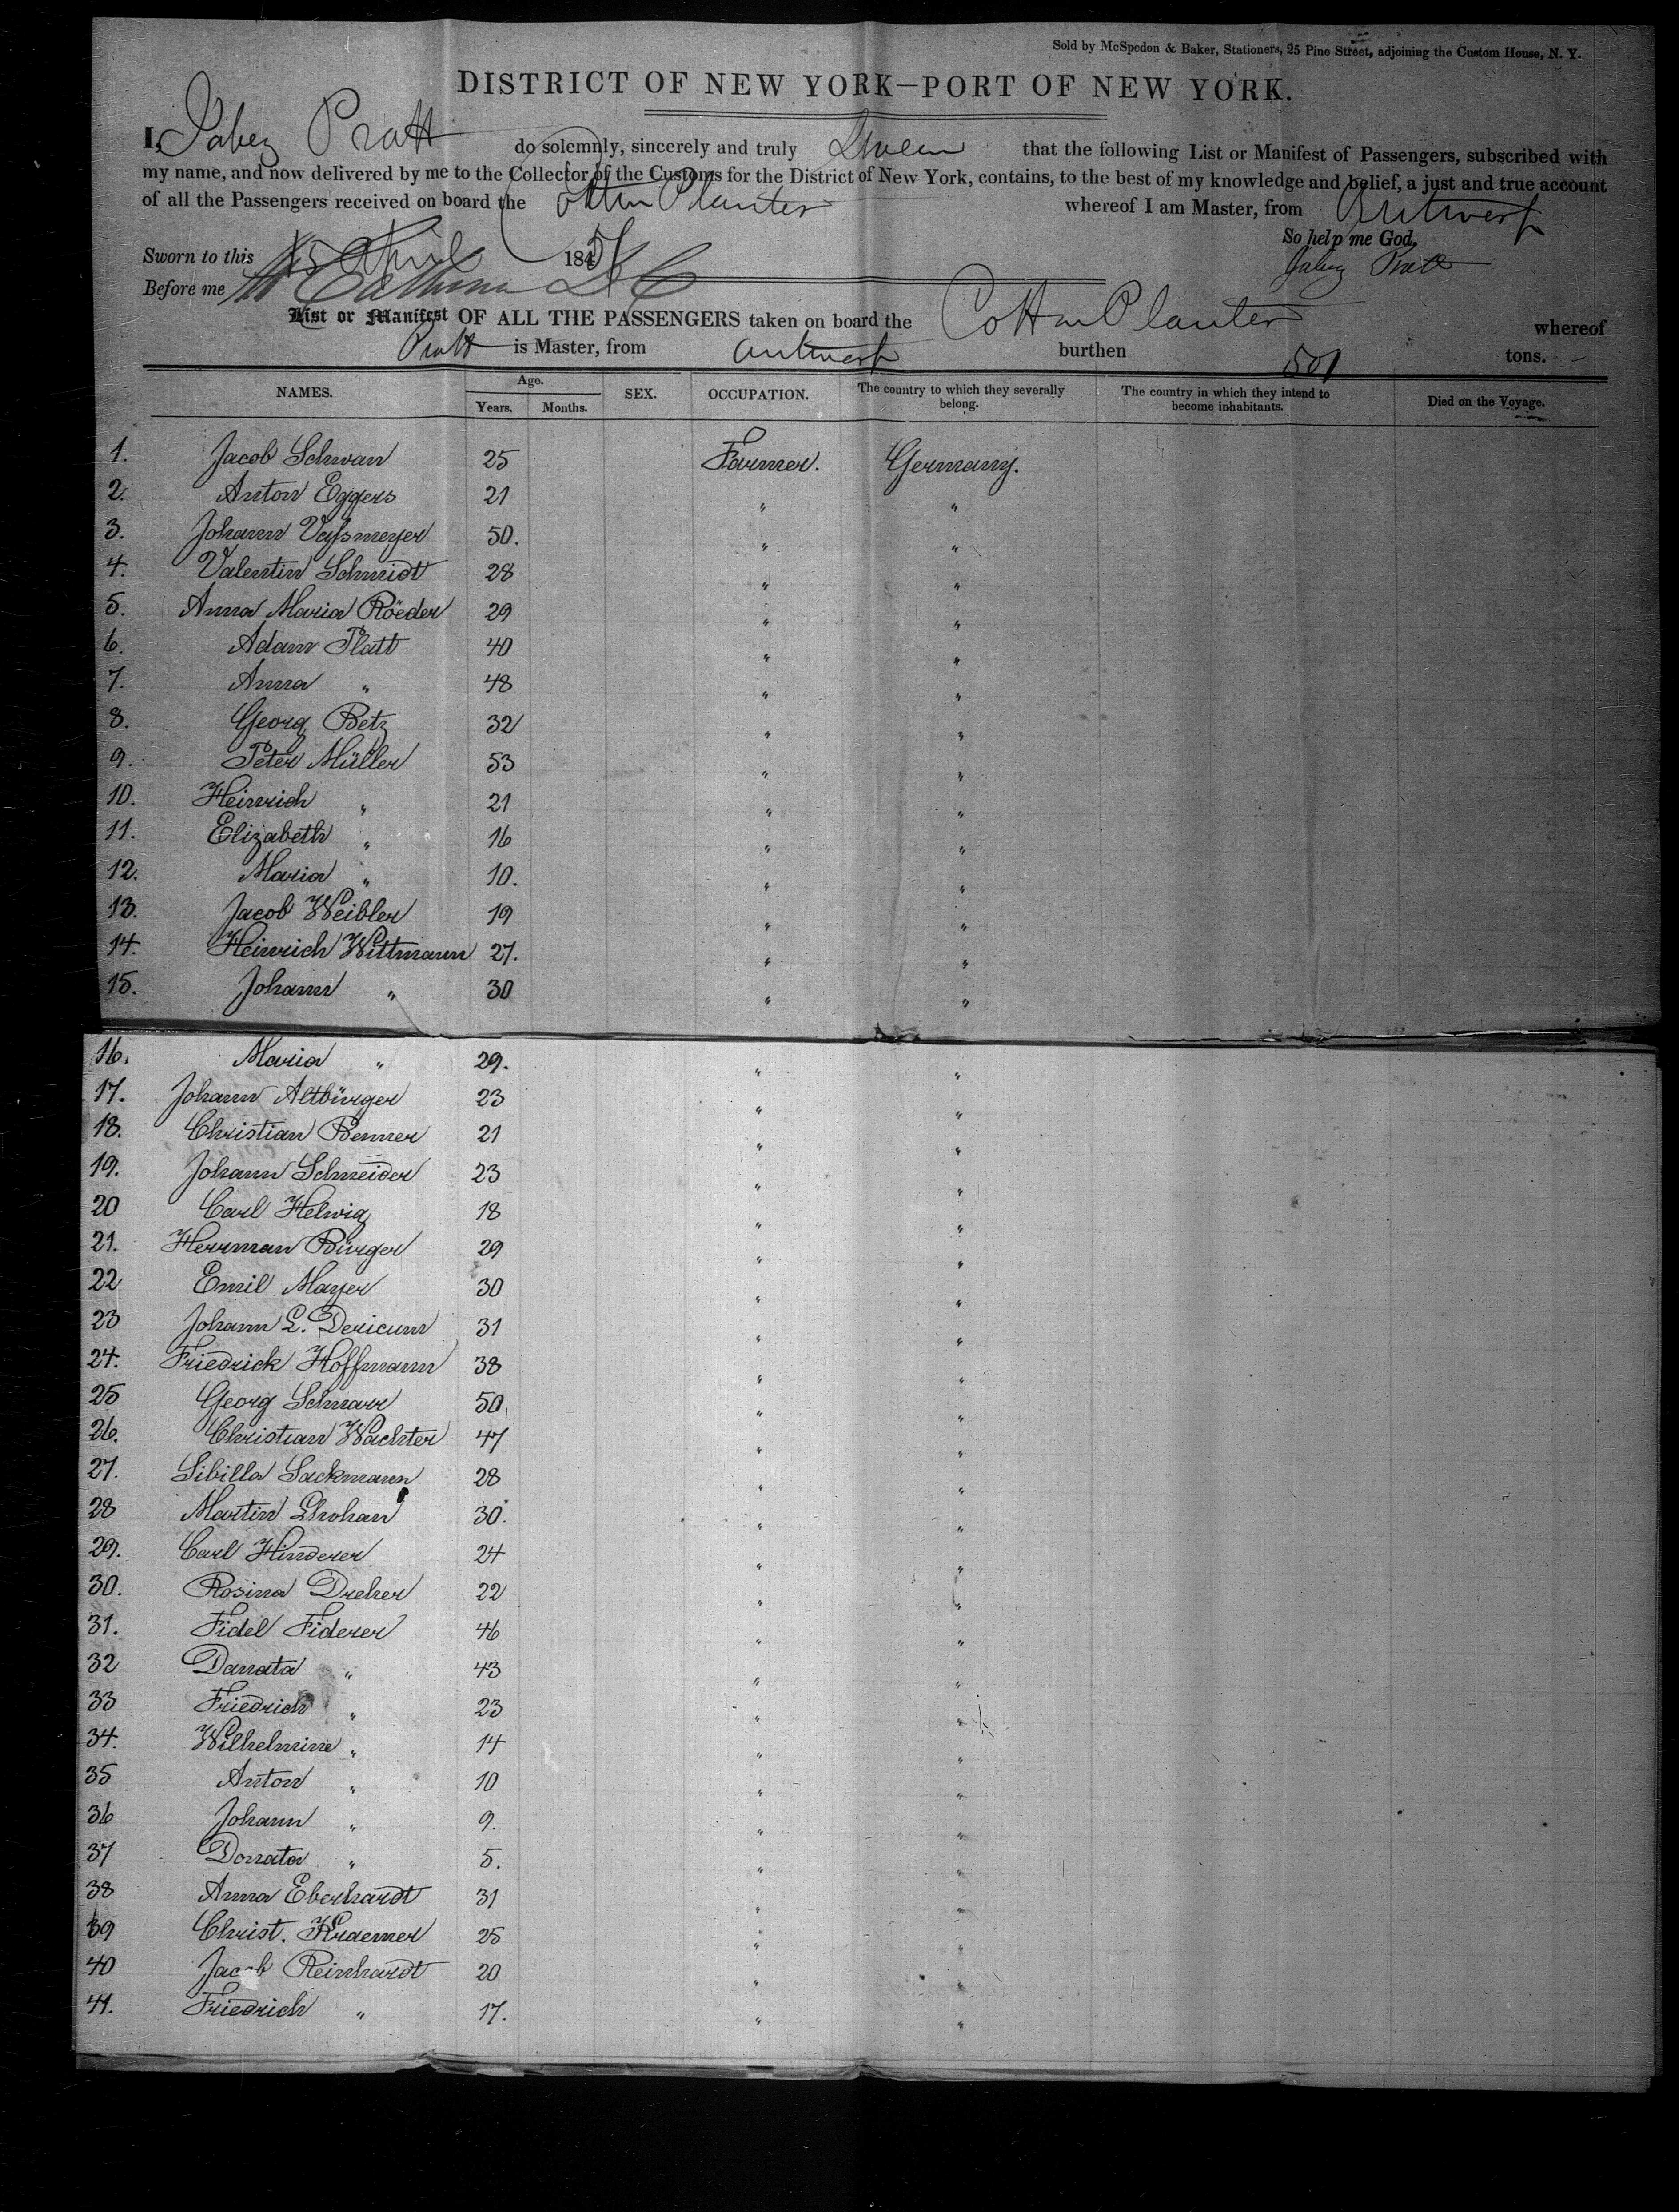 Sold by McSpedon & Baker, Stationers, 25 Pine Street, adjoining the Custom House, N. Y.
DISTRICT OF NEW YORK—PORT OF NEW YORK.
I, Jabez Pratt do solemnly, sincerely and truly Swear that the following List or Manifest of Passengers, subscribed with
my name, and now delivered by me to the Collector of the Customs for the District of New York, contains, to the best of my knowledge and belief, a just and true account
of all the Passengers received on board the Cotton Planter whereof I am Master, from Antwerp
So help me God,
Sworn to this 15 April 184 Jabez Pratt
Before me
List or Manifest OF ALL THE PASSENGERS taken on board the Cotton Planter whereof
Pratt is Master, from Antwerp burthen 501 tons.
NAMES. Age. SEX. OCCUPATION. The country to which they severally belong. The country in which they intend to become inhabitants. Died on the Voyage.
Years. Months.
1. Jacob Schwan 25 Farmer. Germany.
2. Anton Eggers 21 " "
3. Johann Vaßmeyer 50. " "
4. Valentin Schmidt 28 " "
5. Anna Maria Röeder 29 " "
6. Adam Platt 40 " "
7. Anna " 48 " "
8. Georg Betz 32 " "
9. Peter Müller 53 " "
10. Heinrich " 21 " "
11. Elizabeth " 16 " "
12. Maria " 10. " "
13. Jacob Weibler 19 " "
14. Heinrich Wittmann 27. " "
15. Johann " 30 " "
16. Maria " 29. " "
17. Johann Altbürger 23 " "
18. Christian Benner 21 " "
19. Johann Schneider 23 " "
20 Carl Helwig 18 " "
21. Herrman Bürger 29 " "
22 Emil Mayer 30 " "
23 Johann L. Dericum 31 " "
24. Friedrick Hoffmann 38 " "
25 Georg Schnarr 50 " "
26. Christian Wachter 47 " "
27. Sibilla Sackmann 28 " "
28 Martin 30. " "
29. Carl Hinderer 24 " "
30. Rosina Dreher 22 " "
31. Fidel Fiderer 46 " "
32 Danata " 43 " "
33 Friedrich " 23 " "
34. Wilhelmine " 14 " "
35 Anton " 10 " "
36 Johann " 9. " "
37 Donata " 5. " "
38 Anna Eberhardt 31 " "
39 Christ. Kraemer 25 " "
40 Jacob Reinhardt 20 " "
41. Friedrich " 17. " "